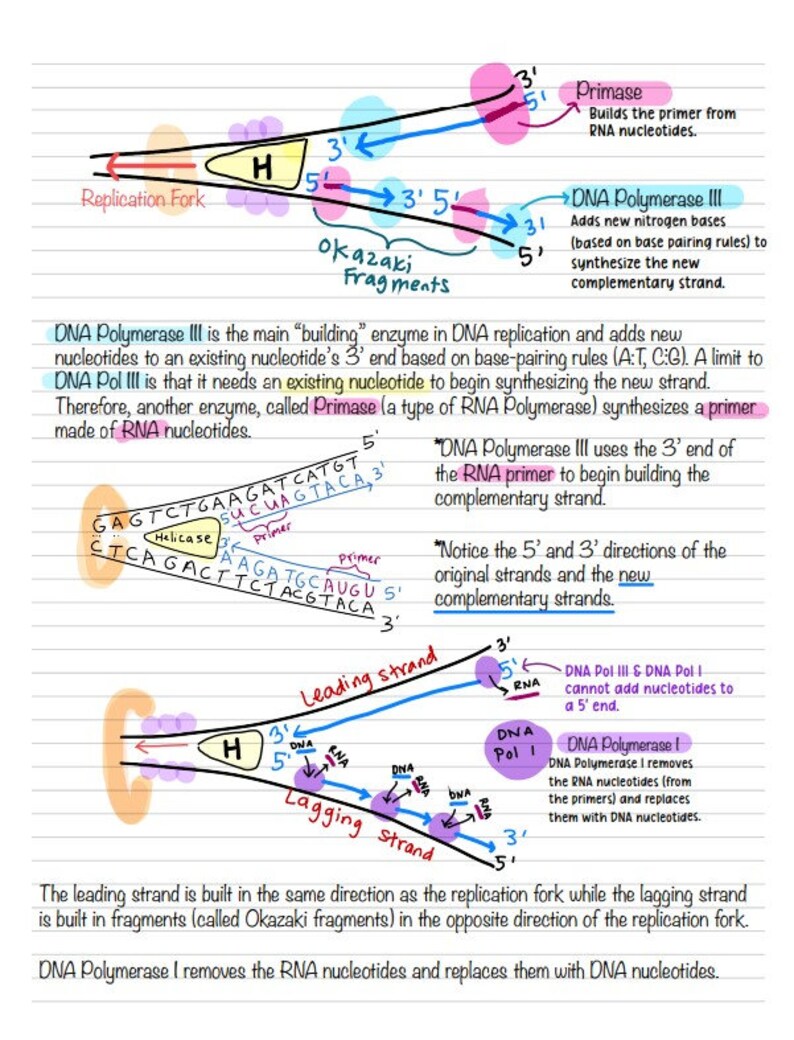 3'
5'
Primase
Builds the primer from
RNA nucleotides.
3'
H
5'
3'
5'
Replication Fork
3'
5'
DNA Polymerase III
Adds new nitrogen bases
(based on base pairing rules) to
synthesize the new
complementary strand.
Okazaki
Fragments
DNA Polymerase III is the main “building” enzyme in DNA replication and adds new
nucleotides to an existing nucleotide's 3' end based on base-pairing rules (A:T, C:G). A limit to
DNA Pol III is that it needs an existing nucleotide to begin synthesizing the new strand.
Therefore, another enzyme, called Primase (a type of RNA Polymerase) synthesizes a primer
made of RNA nucleotides.
5'
GAGTCTGAAGATCATGT
3'
5'UCUAGTACA
Primer
Helicase
3'
AAGATGCAUGU 5'
Primer
CTCAGACTTCTACGTACA
3'
*DNA Polymerase III uses the 3' end of
the RNA primer to begin building the
complementary strand.
*Notice the 5' and 3' directions of the
original strands and the new
complementary strands.
3'
Leading strand
5'
RNA
DNA Pol III & DNA Pol I
cannot add nucleotides to
a 5' end.
3'
H
5'
DNA
RNA
DNA
RNA
DNA
RNA
Lagging strand
3'
5'
DNA
Pol I
DNA Polymerase I
DNA Polymerase I removes
the RNA nucleotides (from
the primers) and replaces
them with DNA nucleotides.
The leading strand is built in the same direction as the replication fork while the lagging strand
is built in fragments (called Okazaki fragments) in the opposite direction of the replication fork.
DNA Polymerase I removes the RNA nucleotides and replaces them with DNA nucleotides.